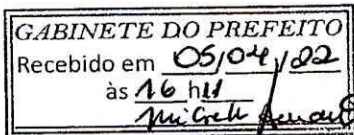 GABINETE DO PREFEITO
Recebido em 05/04/22
às 16 h11